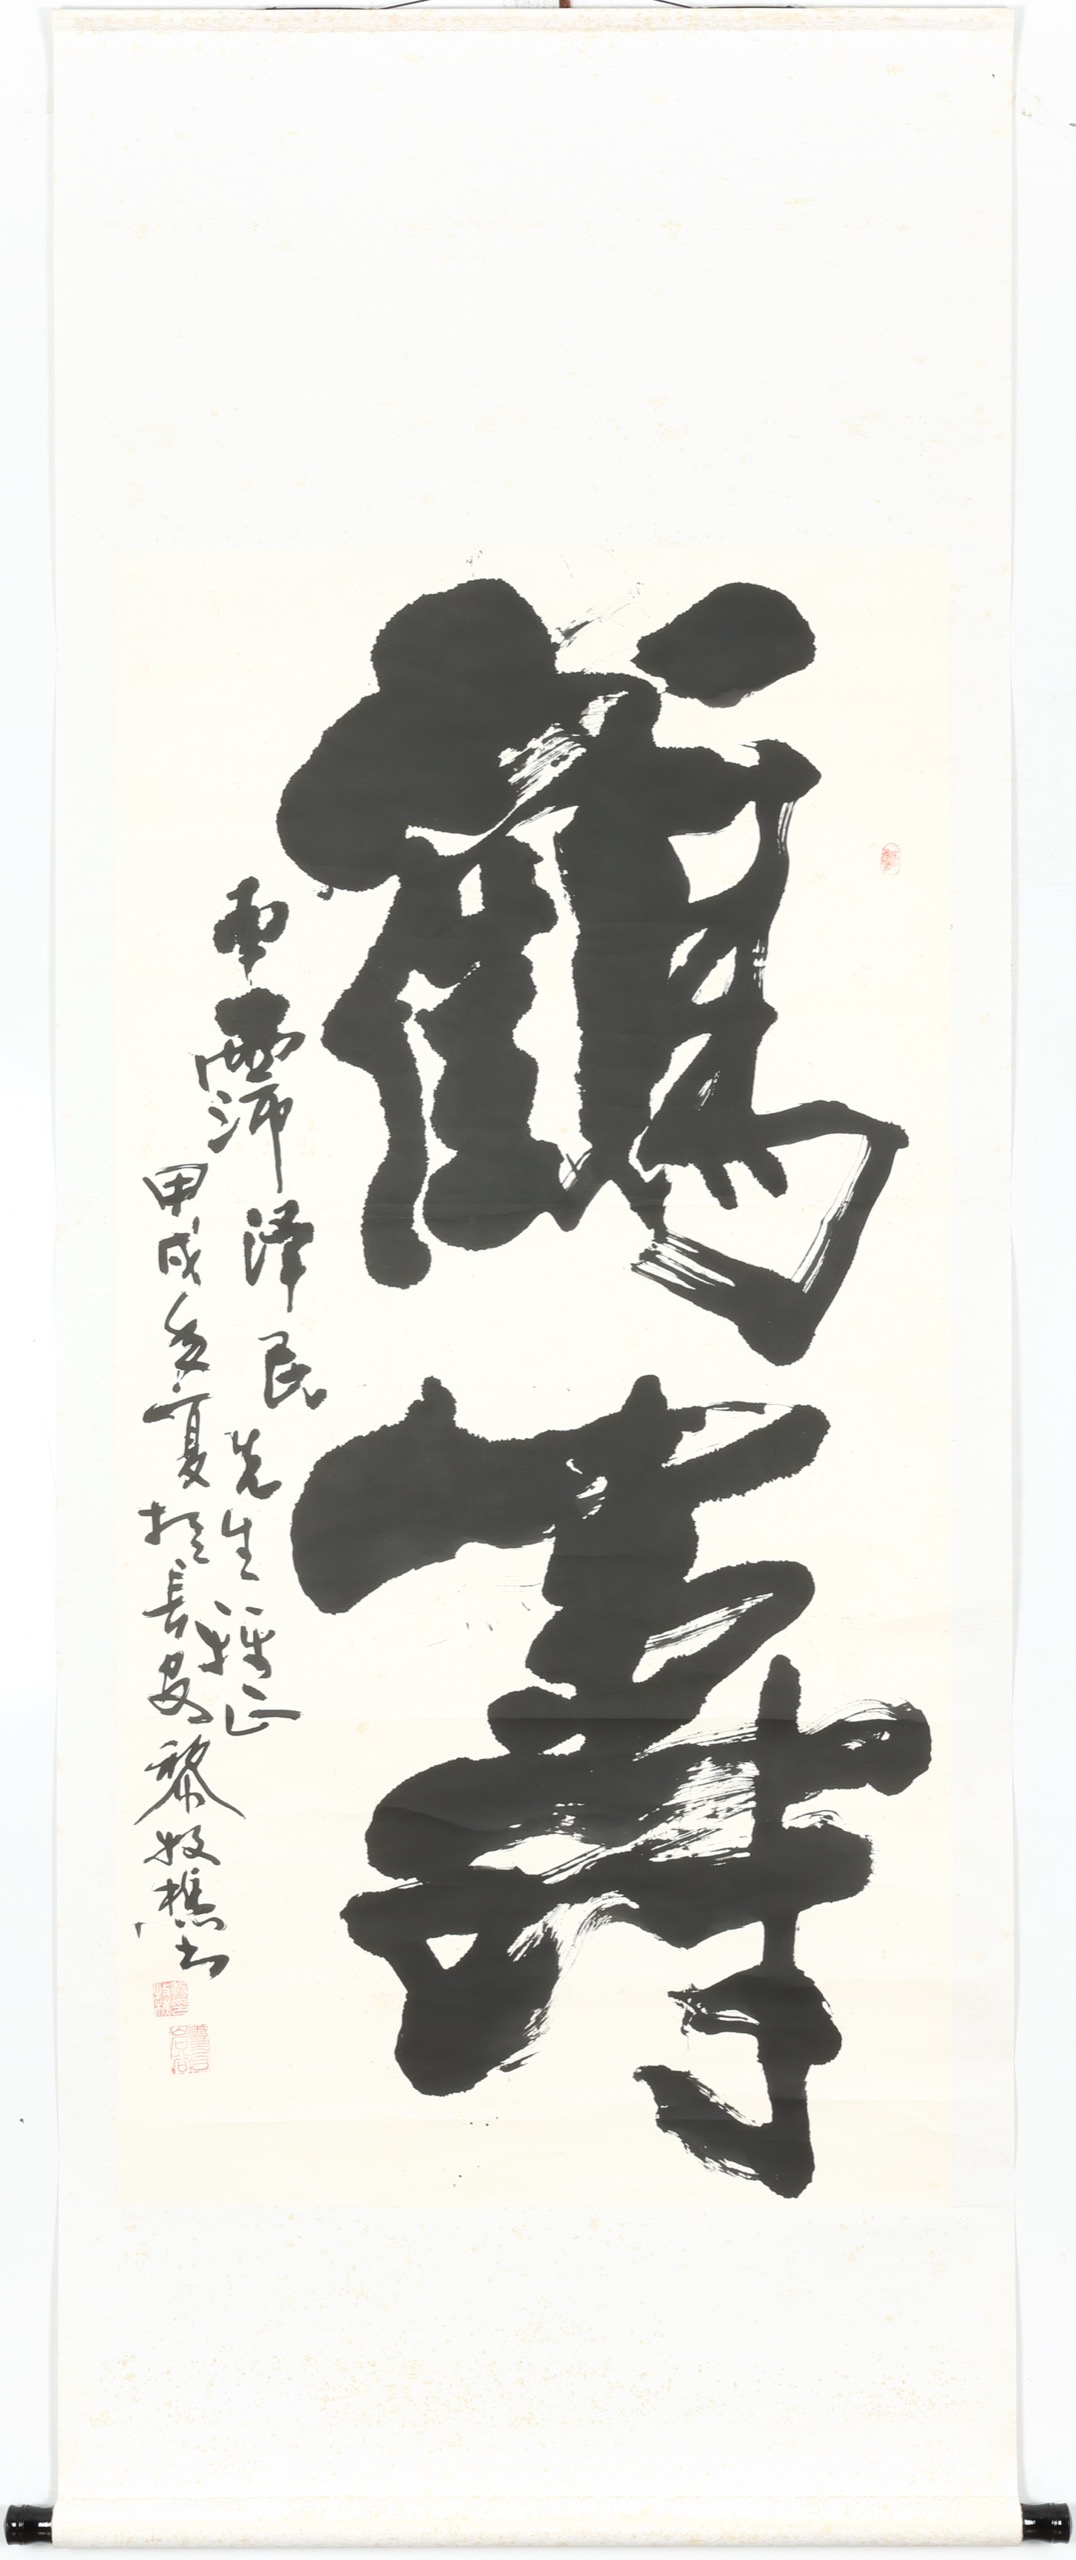 鶴壽
霈澤民先生雅正
甲戌夏於長安黎牧樵書